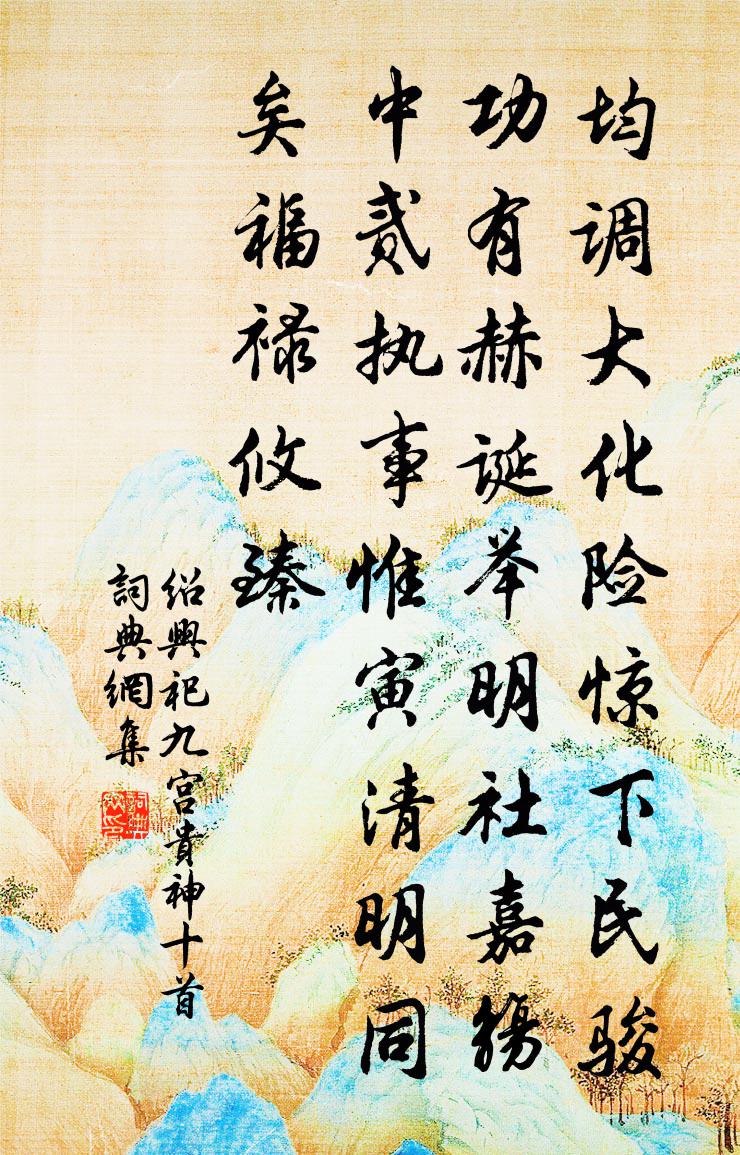 均调大化险惊下民骏
功有赫诞举明社嘉觞
中贰执事惟寅清明同
矣福禄攸臻
绍興祀九宫貴神十首
詞典網集